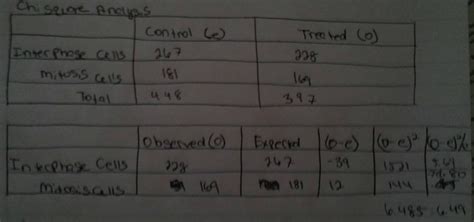 Chi square Analysis
Control (e) Treated (o)
Interphase Cells 267 228
Mitosis Cells 181 169
Total 448 397
Observed (o) Expected (o-e) (o-e)² (o-e)²/e
Interphase Cells 228 267 -39 1521 5.69
Mitosis Cells 169 181 12 144
6.485 6.49